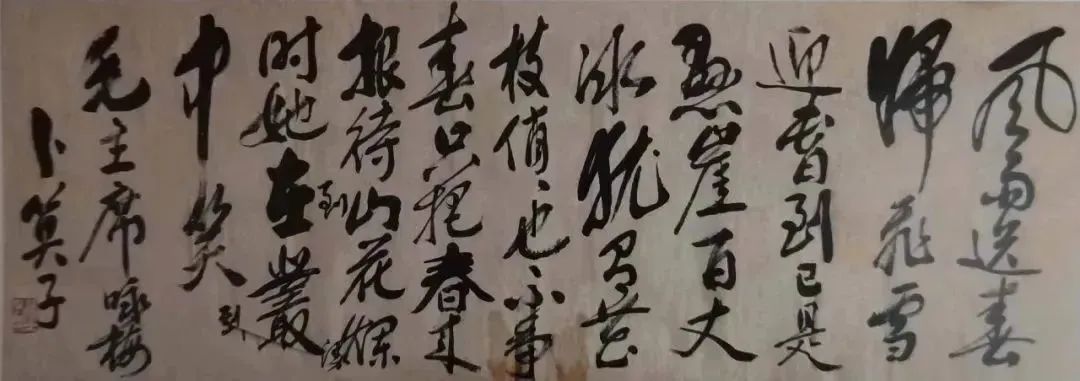 风雨送春
歸飛雪
迎春到已是
悬崖百丈
冰犹有花
枝俏俏也不争
春只把春来
报待到山花爛漫
时她在叢
中笑
到
毛主席咏梅
卜算子